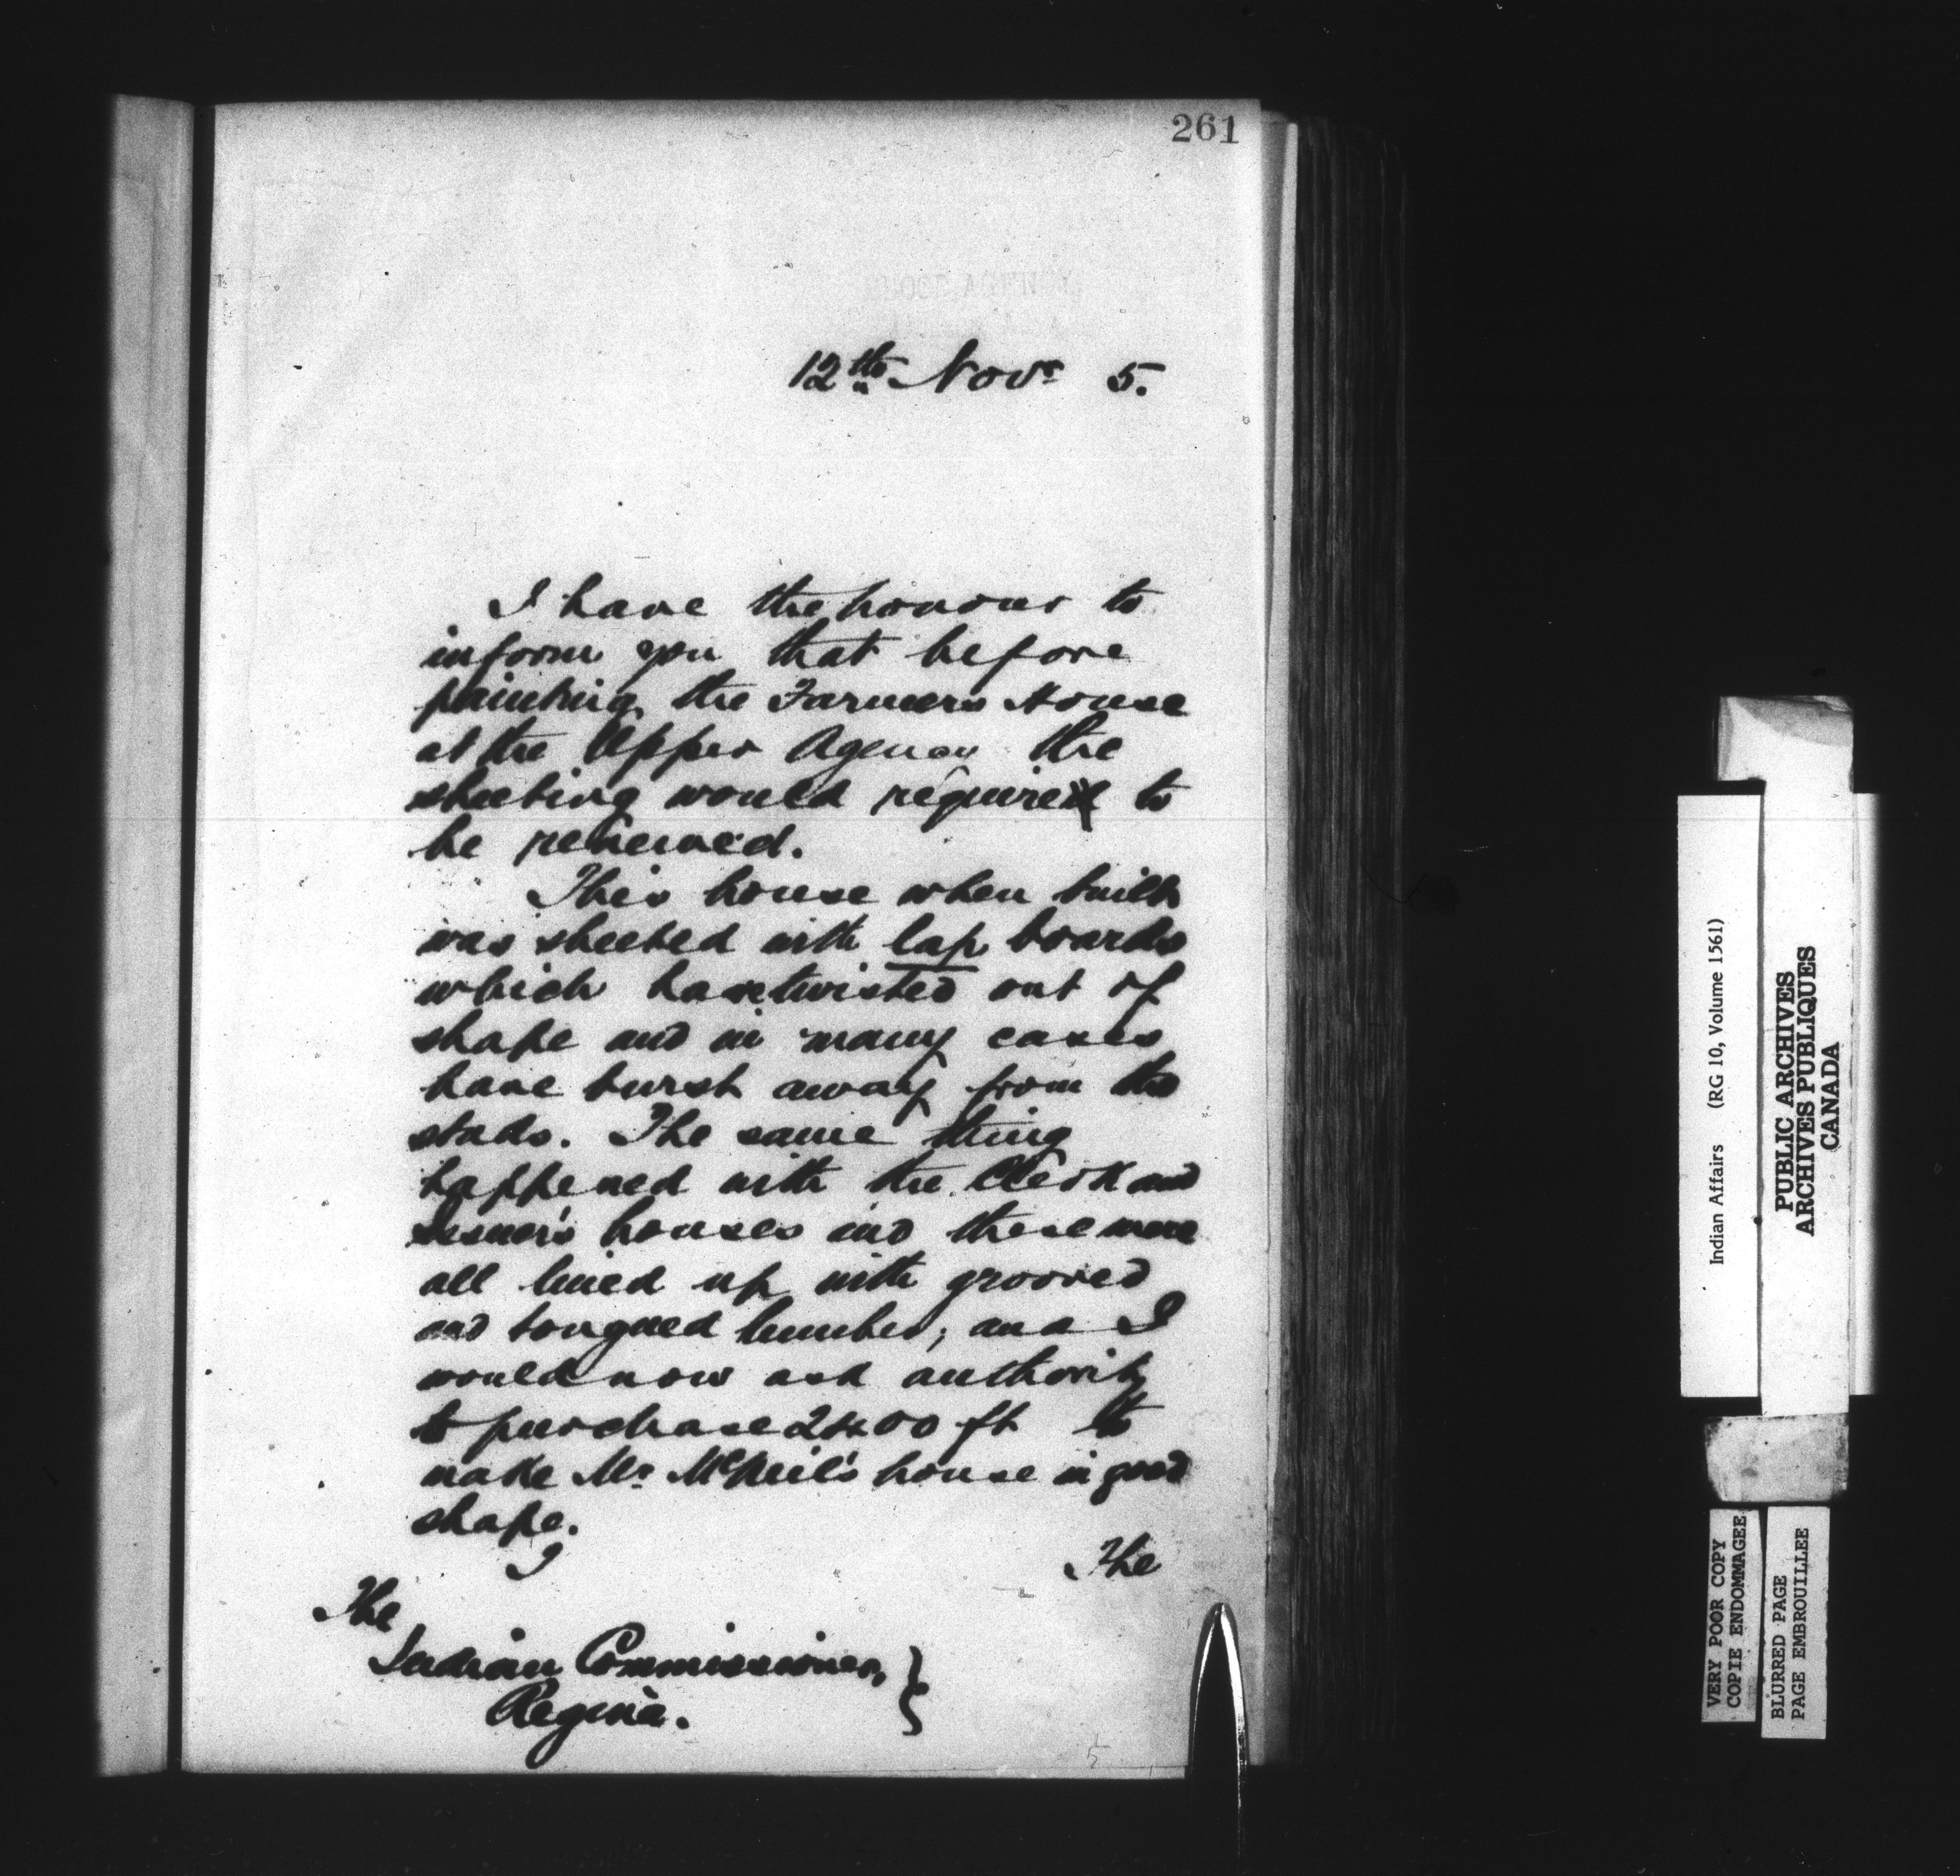 261
12th Novr 5.
I have the honour to
inform you that before
painting the Farmers House
at the Upper Agency the
sheeting would require to
be renewed.
This house when built
was sheeted with lap boards
which have twisted out of
shape and in many cases
have burst away from the
studs. The same thing
happened with the Clerk and
Issuer's houses and these were
all lined up with grooved
and tongued lumber; and I
would now ask authority
to purchase 2400 ft to
make Mr. McNeil's house in good
shape.
The
The
Indian Commissioner,
Regina.
5
Indian Affairs (RG 10, Volume 1561)
PUBLIC ARCHIVES
ARCHIVES PUBLIQUES
CANADA
VERY POOR COPY
COPIE ENDOMMAGEE
BLURRED PAGE
PAGE EMBROUILLEE